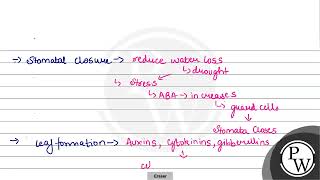 → Stomatal closure → reduce water loss
↳ drought
↳ stress
↳ ABA → increases
↳ guard cells
Stomata closes
→ leaf formation → Auxins, Cytokinins, gibberellins
Eraser
PW